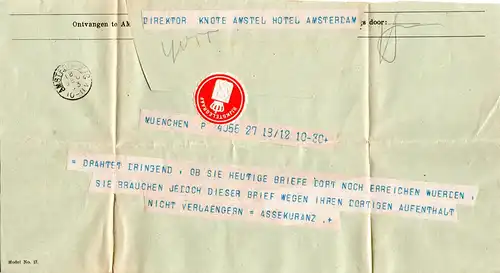 DIREKTOR KNOTE AMSTEL HOTEL AMSTERDAM
Ontvangen te door:
RIJKSTELEGRAAF
MUENCHEN P 4056 27 13/12 10-30+
= DRAHTET DRINGEND, OB SIE HEUTIGE BRIEFE DORT NOCH ERREICHEN WUERDEN,
SIE BRAUCHEN JEDOCH DIESER BRIEF WEGEN IHREN DORTIGEN AUFENTHALT
NICHT VERLAENGERN = ASSEKURANZ .+
Model No. 17.